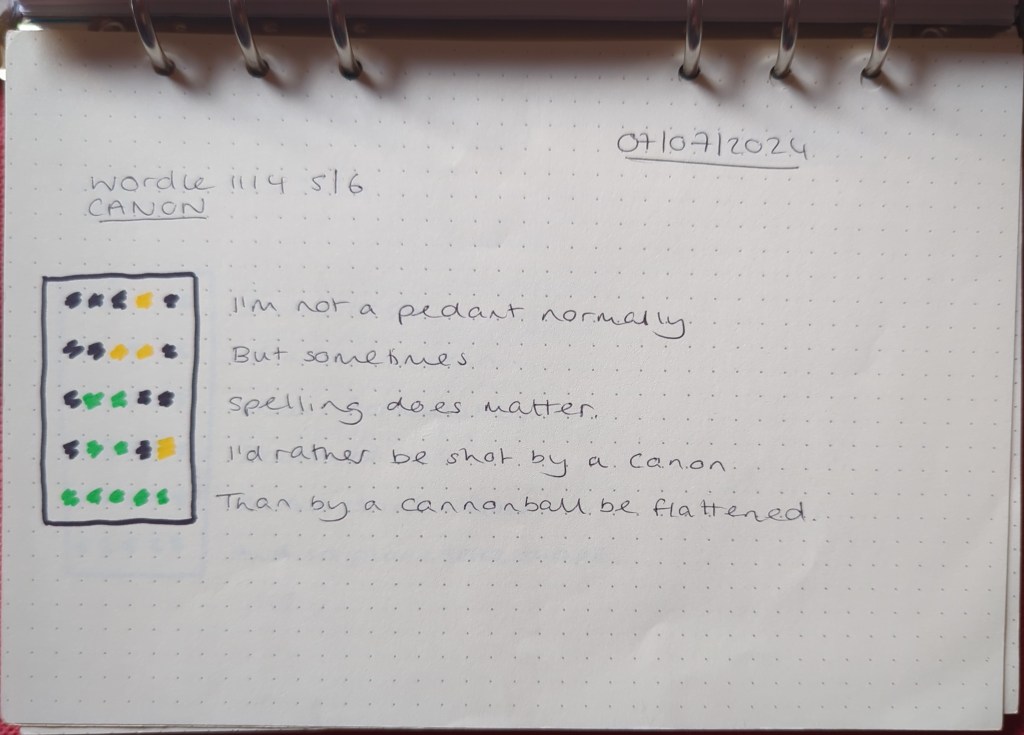 07/07/2024
Wordle 1114 5/6
CANON
I'm not a pedant normally.
But sometimes.
Spelling does matter.
I'd rather be shot by a canon.
Than by a cannonball be flattened.